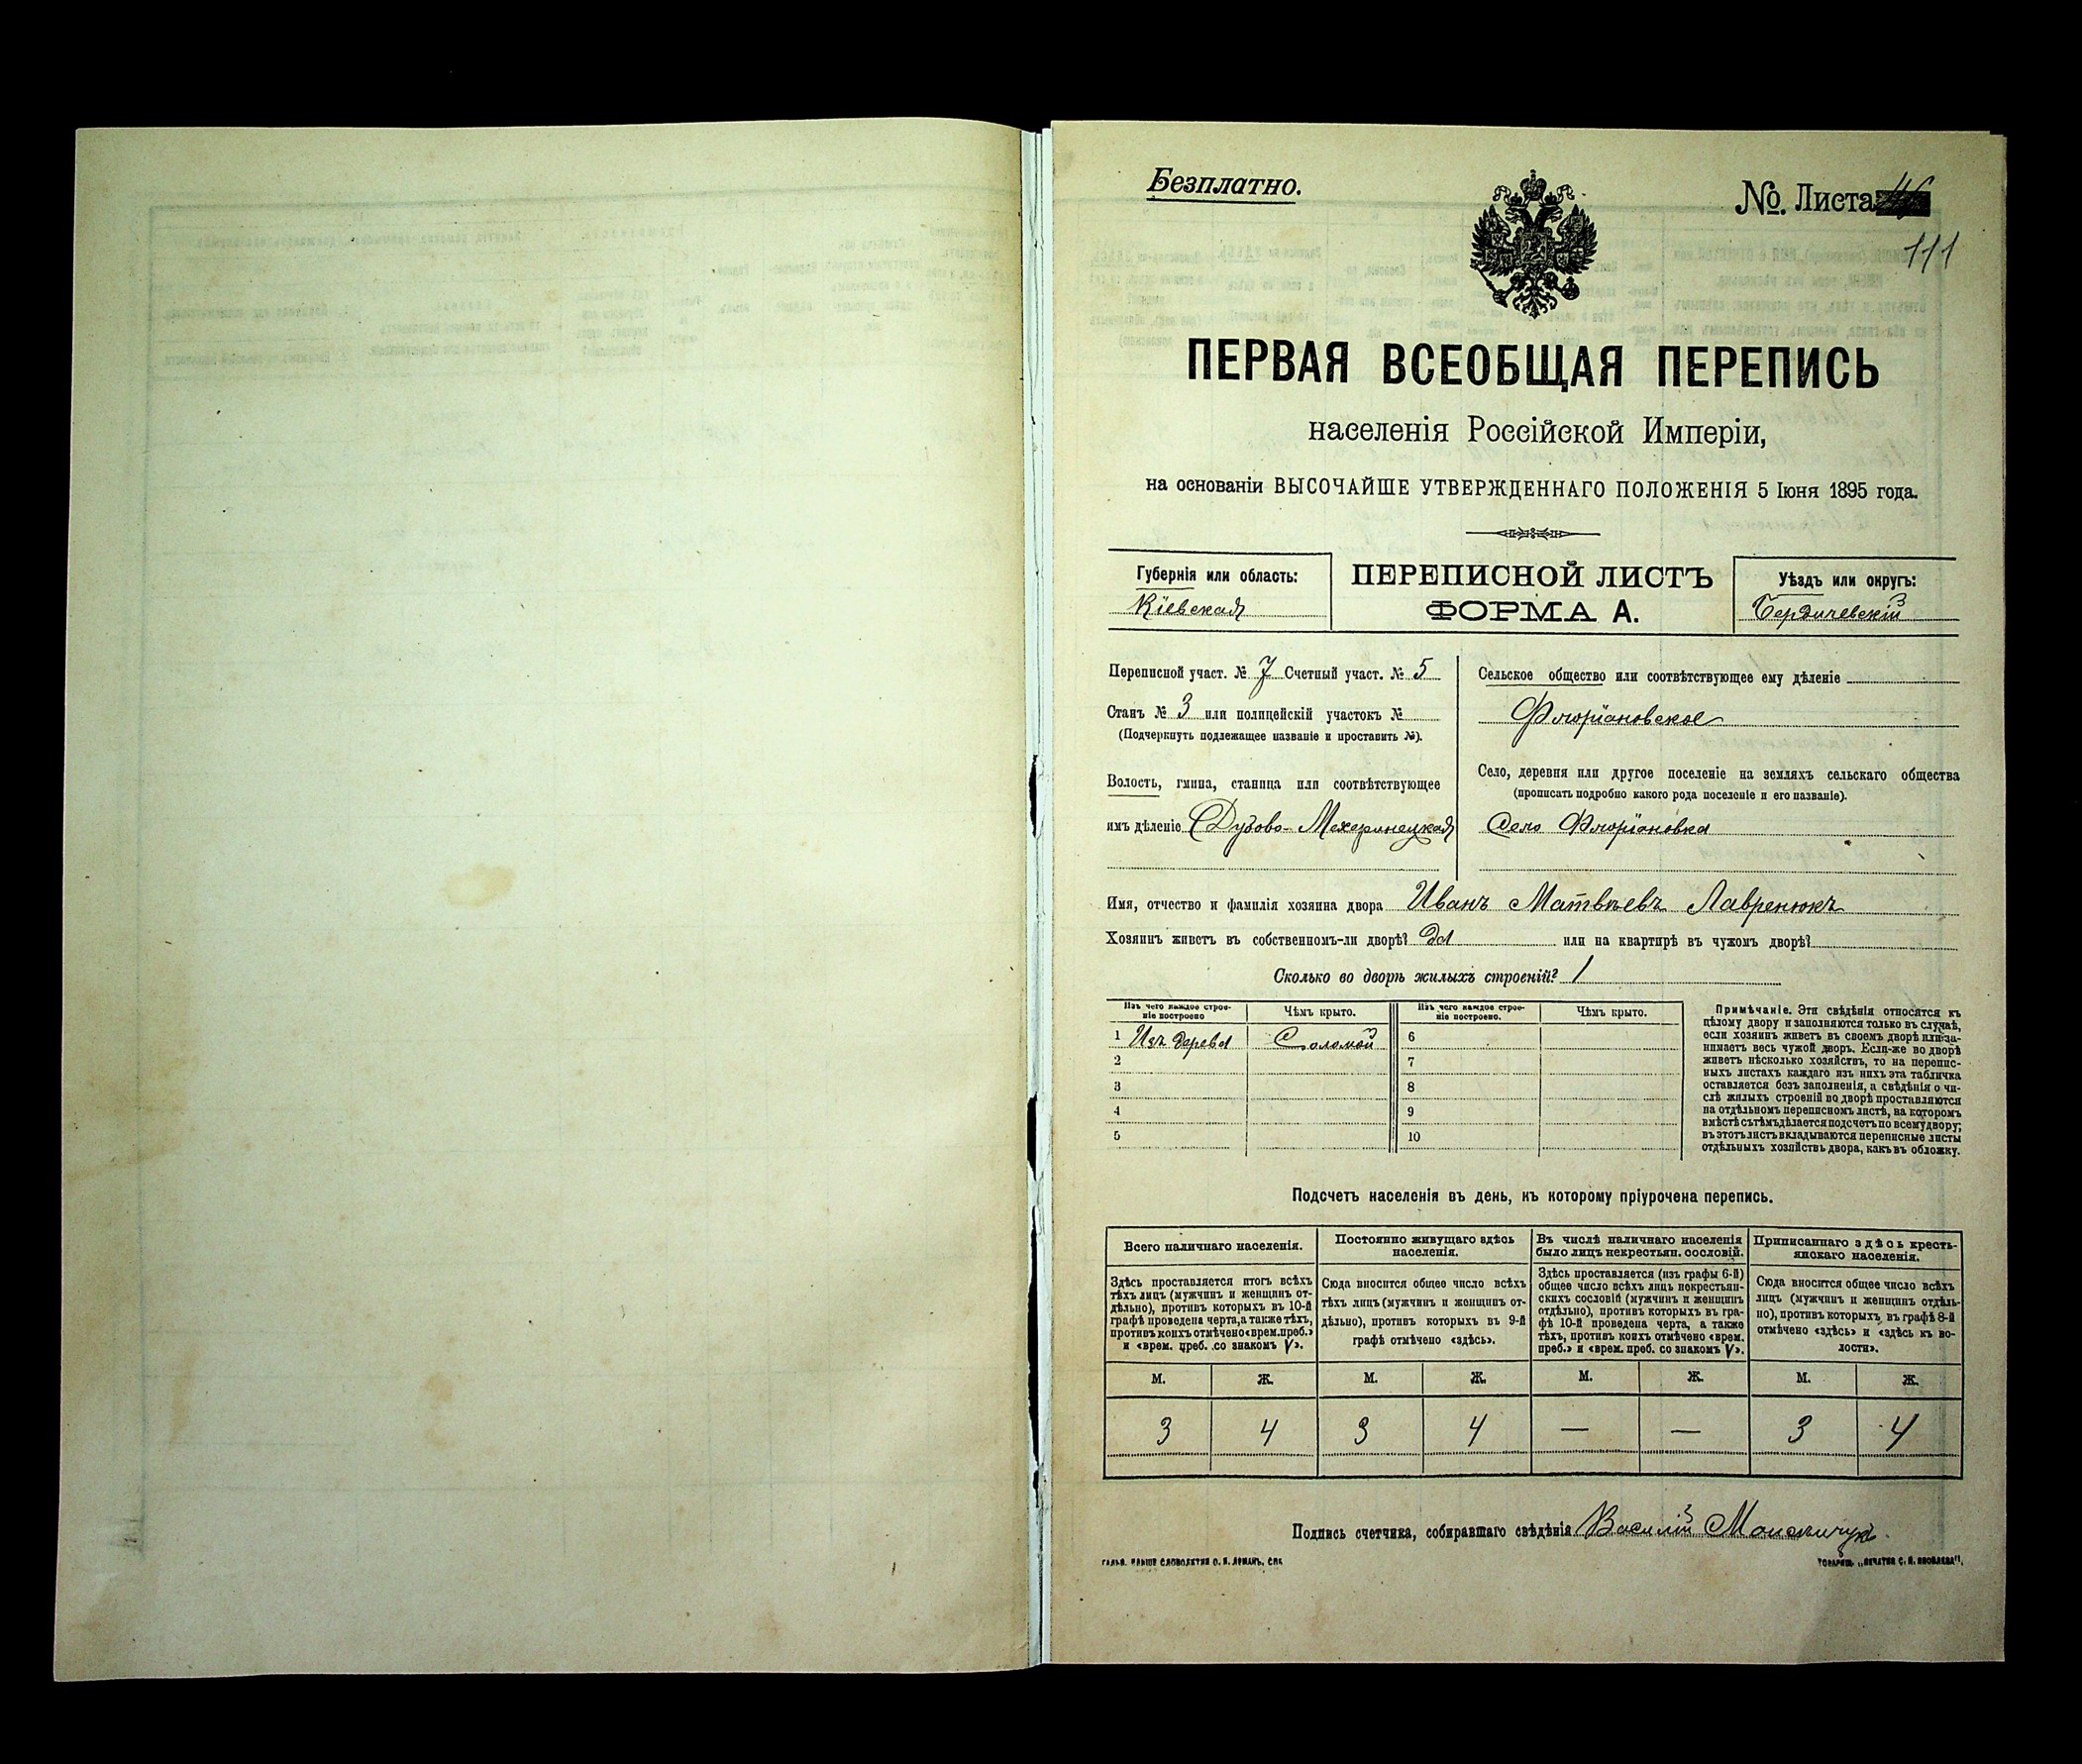 Безплатно.
№. Листа
111
ПЕРВАЯ ВСЕОБЩАЯ ПЕРЕПИСЬ
населенія Россійской Имперіи,
на основаніи ВЫСОЧАЙШЕ УТВЕРЖДЕННАГО ПОЛОЖЕНІЯ 5 Іюня 1895 года.
Губернія или область:
Кіевская
ПЕРЕПИСНОЙ ЛИСТЪ
ФОРМА А.
Уѣздъ или округъ:
Бердичевскій
Переписной участ. № 7 Счетный участ. № 5
Станъ № 3 или полицейскій участокъ №
(Подчеркнуть подлежащее названіе и проставить №).
Волость, гмина, станица или соотвѣтствующее
имъ дѣленіе Дубово-Махаринецкая
Сельское общество или соотвѣтствующее ему дѣленіе
Флоріановское
Село, деревня или другое поселеніе на земляхъ сельскаго общества
(прописать подробно какого рода поселеніе и его названіе).
Село Флоріановка
Имя, отчество и фамилія хозяина двора Иванъ Матвѣевъ Лавренюкъ
Хозяинъ живетъ въ собственномъ-ли дворѣ? Да или на квартирѣ въ чужомъ дворѣ?
Сколько во дворѣ жилыхъ строеній? 1
Изъ чего каждое строе-
ніе построено
Чѣмъ крыто.
Изъ чего каждое строе-
ніе построено.
Чѣмъ крыто.
1 Изъ дерева Соломой 6
2 7
3 8
4 9
5 10
Примѣчаніе. Эти свѣдѣнія относятся къ
цѣлому двору и заполняются только въ случаѣ,
если хозяинъ живетъ въ своемъ дворѣ или за-
нимаетъ весь чужой дворъ. Если-же во дворѣ
живетъ нѣсколько хозяйствъ, то на перепис-
ныхъ листахъ каждаго изъ нихъ эта табличка
оставляется безъ заполненія, а свѣдѣнія о чи-
слѣ жилыхъ строеній во дворѣ проставляются
на отдѣльномъ переписномъ листѣ, на которомъ
вмѣстѣ съ тѣмъ дѣлается подсчетъ по всему двору;
въ этотъ листъ вкладываются переписные листы
отдѣльныхъ хозяйствъ двора, какъ въ обложку.
Подсчетъ населенія въ день, къ которому пріурочена перепись.
Всего наличнаго населенія.
Здѣсь проставляется итогъ всѣхъ
тѣхъ лицъ (мужчинъ и женщинъ от-
дѣльно), противъ которыхъ въ 10-й
графѣ проведена черта, а также тѣхъ,
противъ коихъ отмѣчено «врем. преб.»
и «врем. преб. со знакомъ V».
Постоянно живущаго здѣсь
населенія.
Сюда вносится общее число всѣхъ
тѣхъ лицъ (мужчинъ и женщинъ от-
дѣльно), противъ которыхъ въ 9-й
графѣ отмѣчено «здѣсь».
Въ числѣ наличнаго населенія
было лицъ некрестьян. сословій.
Здѣсь проставляется (изъ графы 6-й)
общее число всѣхъ лицъ некрестьян-
скихъ сословій (мужчинъ и женщинъ
отдѣльно), противъ которыхъ въ гра-
фѣ 10-й проведена черта, а также
тѣхъ, противъ коихъ отмѣчено «врем.
преб.» и «врем. преб. со знакомъ V».
Приписаннаго здѣсь кресть-
янскаго населенія.
Сюда вносится общее число всѣхъ
лицъ (мужчинъ и женщинъ отдѣль-
но), противъ которыхъ въ графѣ 8-й
отмѣчено «здѣсь» и «здѣсь къ во-
лости».
М. Ж. М. Ж. М. Ж. М. Ж.
3 4 3 4 — — 3 4
Подпись счетчика, собиравшаго свѣдѣнія Василій